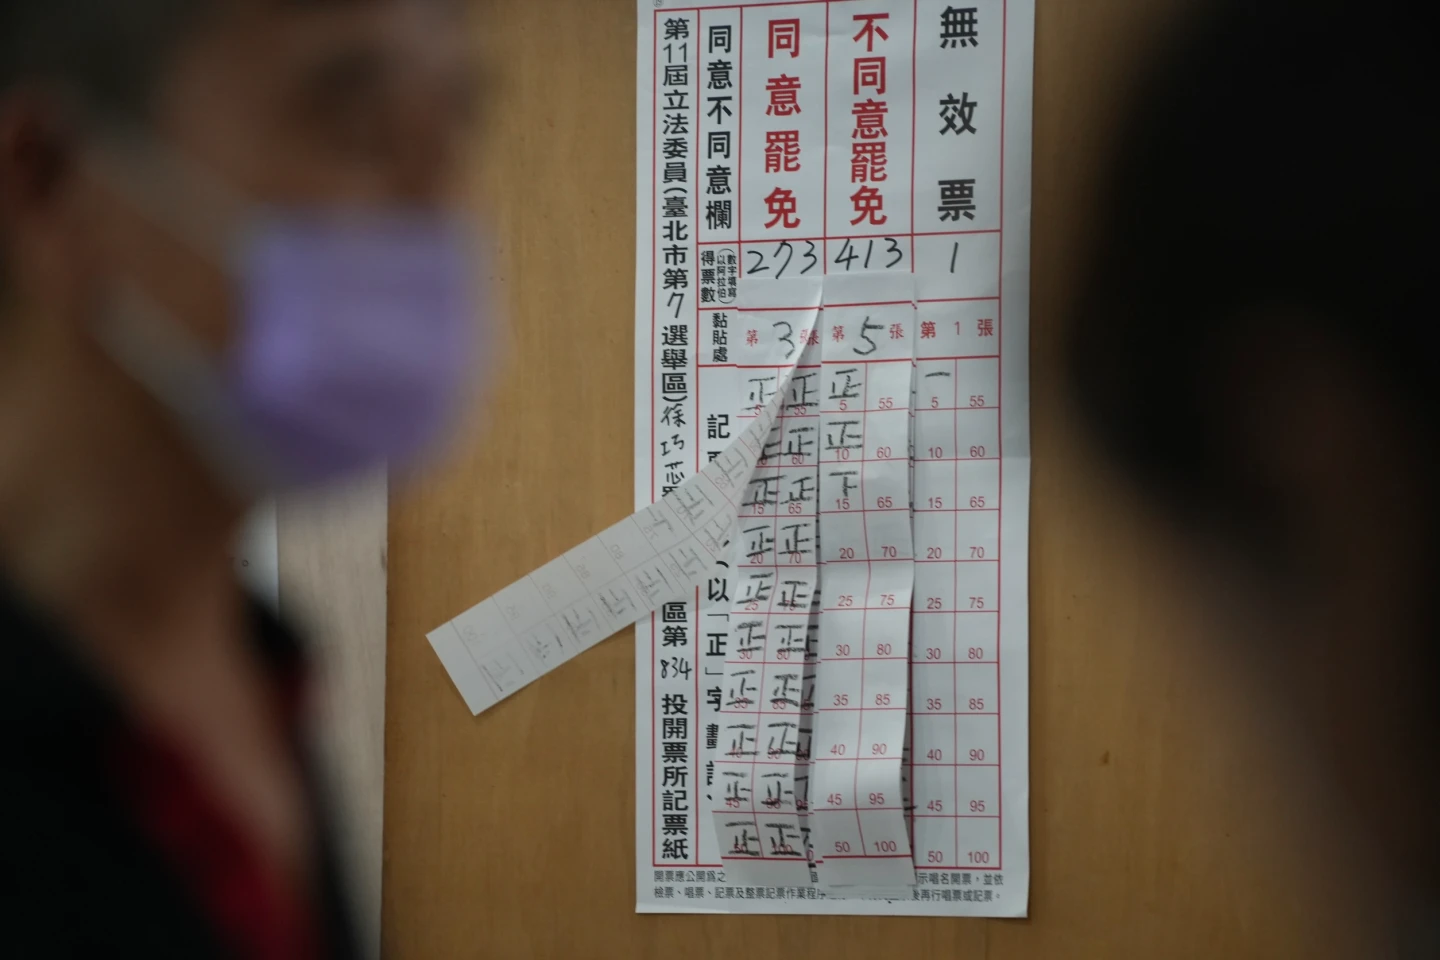 第11屆立法委員(臺北市第7選舉區)徐巧芯
區第834投開票所記票紙
同意不同意欄
同意罷免
不同意罷免
無效票
得票數
(以阿拉伯數字填寫)
273
413
1
黏貼處
第3張
第5張
第1張
記
(以「正」字畫記
正 正 正 一
5 55 5 55 5 55
正 正 正
10 60 10 60 10 60
正 正 下
15 65 15 65 15 65
正 正
20 70 20 70 20 70
正 正
25 75 25 75 25 75
正 正
30 80 30 80 30 80
正 正
35 85 35 85 35 85
正 正
40 90 40 90 40 90
正 正
45 95 45 95 45 95
正 正
50 100 50 100 50 100
開票應公開為之
示唱名開票,並依
檢票、唱票、記票及整票記票作業程序
後再行唱票或記票。